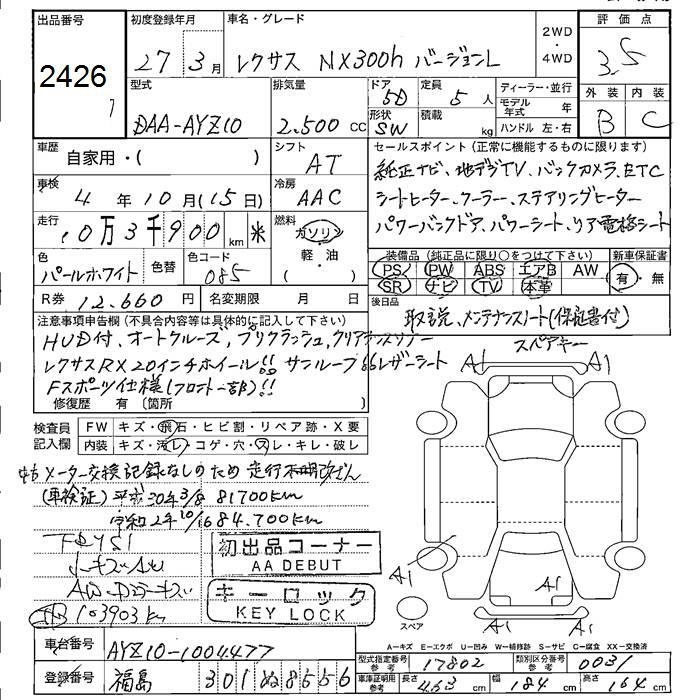 出品番号
2426
初度登録年月
27 3月
車名・グレード
レクサス NX300h バージョンL
2WD
・
4WD
評価点
3.5
外装 内装
B C
型式
DAA-AYZ10
排気量
2.500 cc
ドア
5D
形状
SW
定員
5人
積載
kg
ディーラー・並行
モデル年式 年
ハンドル 左・右
車歴
自家用・( )
シフト
AT
車検
4年10月(15日)
冷房
AAC
走行
10万3千900km
燃料
ガソリン
軽・油
( )
色
パールホワイト
色替
色コード
085
R券 12.660円
名変期限 月 日
セールスポイント(正常に機能するものに限ります)
純正ナビ、地デジTV、バックカメラ、ETC
シートヒーター、クーラー、ステアリングヒーター
パワーバックドア、パワーシート、リア電格シート
装備品(純正品に限り○をつけて下さい)
PS PW ABS エアB AW
SR ナビ TV 本革
新車保証書
有・無
後日品
取説、メンテナンスノート(保証書付)
スペアキー
注意事項申告欄(不具合内容等は具体的に記入して下さい)
HUD付、オートクルーズ、プリクラッシュ、クリアランスソナー
レクサスRX20インチホイール!! サンルーフ レザーシート
Fスポーツ仕様(フロント一部)!!
修復歴 有(箇所
検査員記入欄
FW キズ・飛石・ヒビ割・リペア跡・X要
内装 キズ・汚レ・コゲ・穴・スレ・キレ・破レ
メーター交換記録なしのため走行不明
(車検証)平成30年3/8 81700km
令和2年10/16 84.700km
初出品コーナー
AA DEBUT
キーロック
KEY LOCK
103903km
A1
A1
A1
A1
スペア
A-キズ E-エクボ U-凹み W-補修跡 S-サビ C-腐食 XX-交換済
車台番号
AYZ10-1004477
登録番号
福島 301 ぬ 8556
型式指定番号 参考
17802
類別区分番号 参考
0031
車庫証明用 参考
長さ 463cm
幅 184cm
高さ 164cm